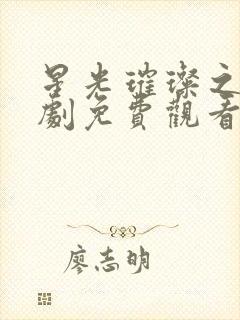 星光璀璨之
劇免費觀看
廖志明